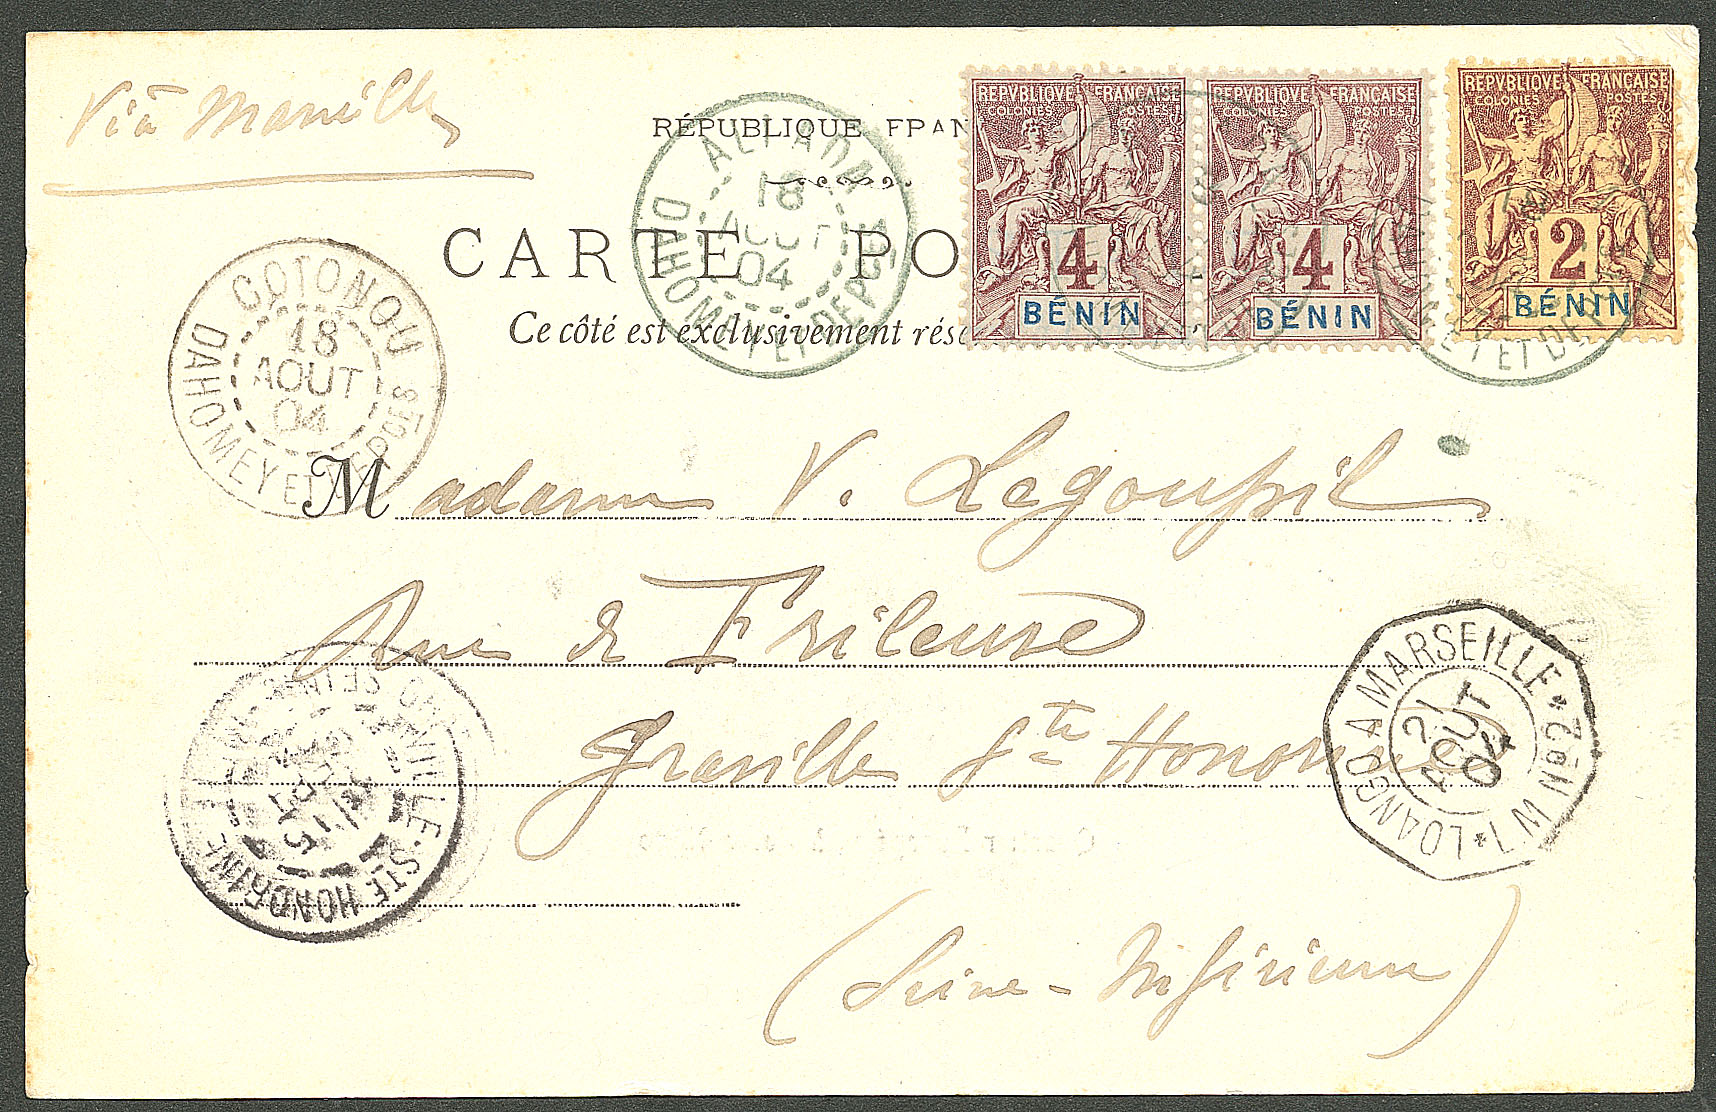 Viâ Marseille
RÉPUBLIQUE FRAN
CARTE PO
Ce côté est exclusivement rése
REPVBLIQVE FRANÇAISE
COLONIES POSTES
4
BÉNIN
REPVBLIQVE FRANÇAISE
COLONIES POSTES
4
BÉNIN
REPVBLIQVE FRANÇAISE
COLONIES POSTES
2
BÉNIN
18
AOUT
04
DAHOMEY ET DEPces
COTONOU
18
AOUT
04
DAHOMEY ET DEPCES
Madame V. Legoupil
Rue de Frileuse
Graville Ste Honorine
(Seine-Inférieure)
LOANGO A MARSEILLE
21
AOUT
04
L.M No2
GRAVILLE-STE HONORINE
15
SEINE